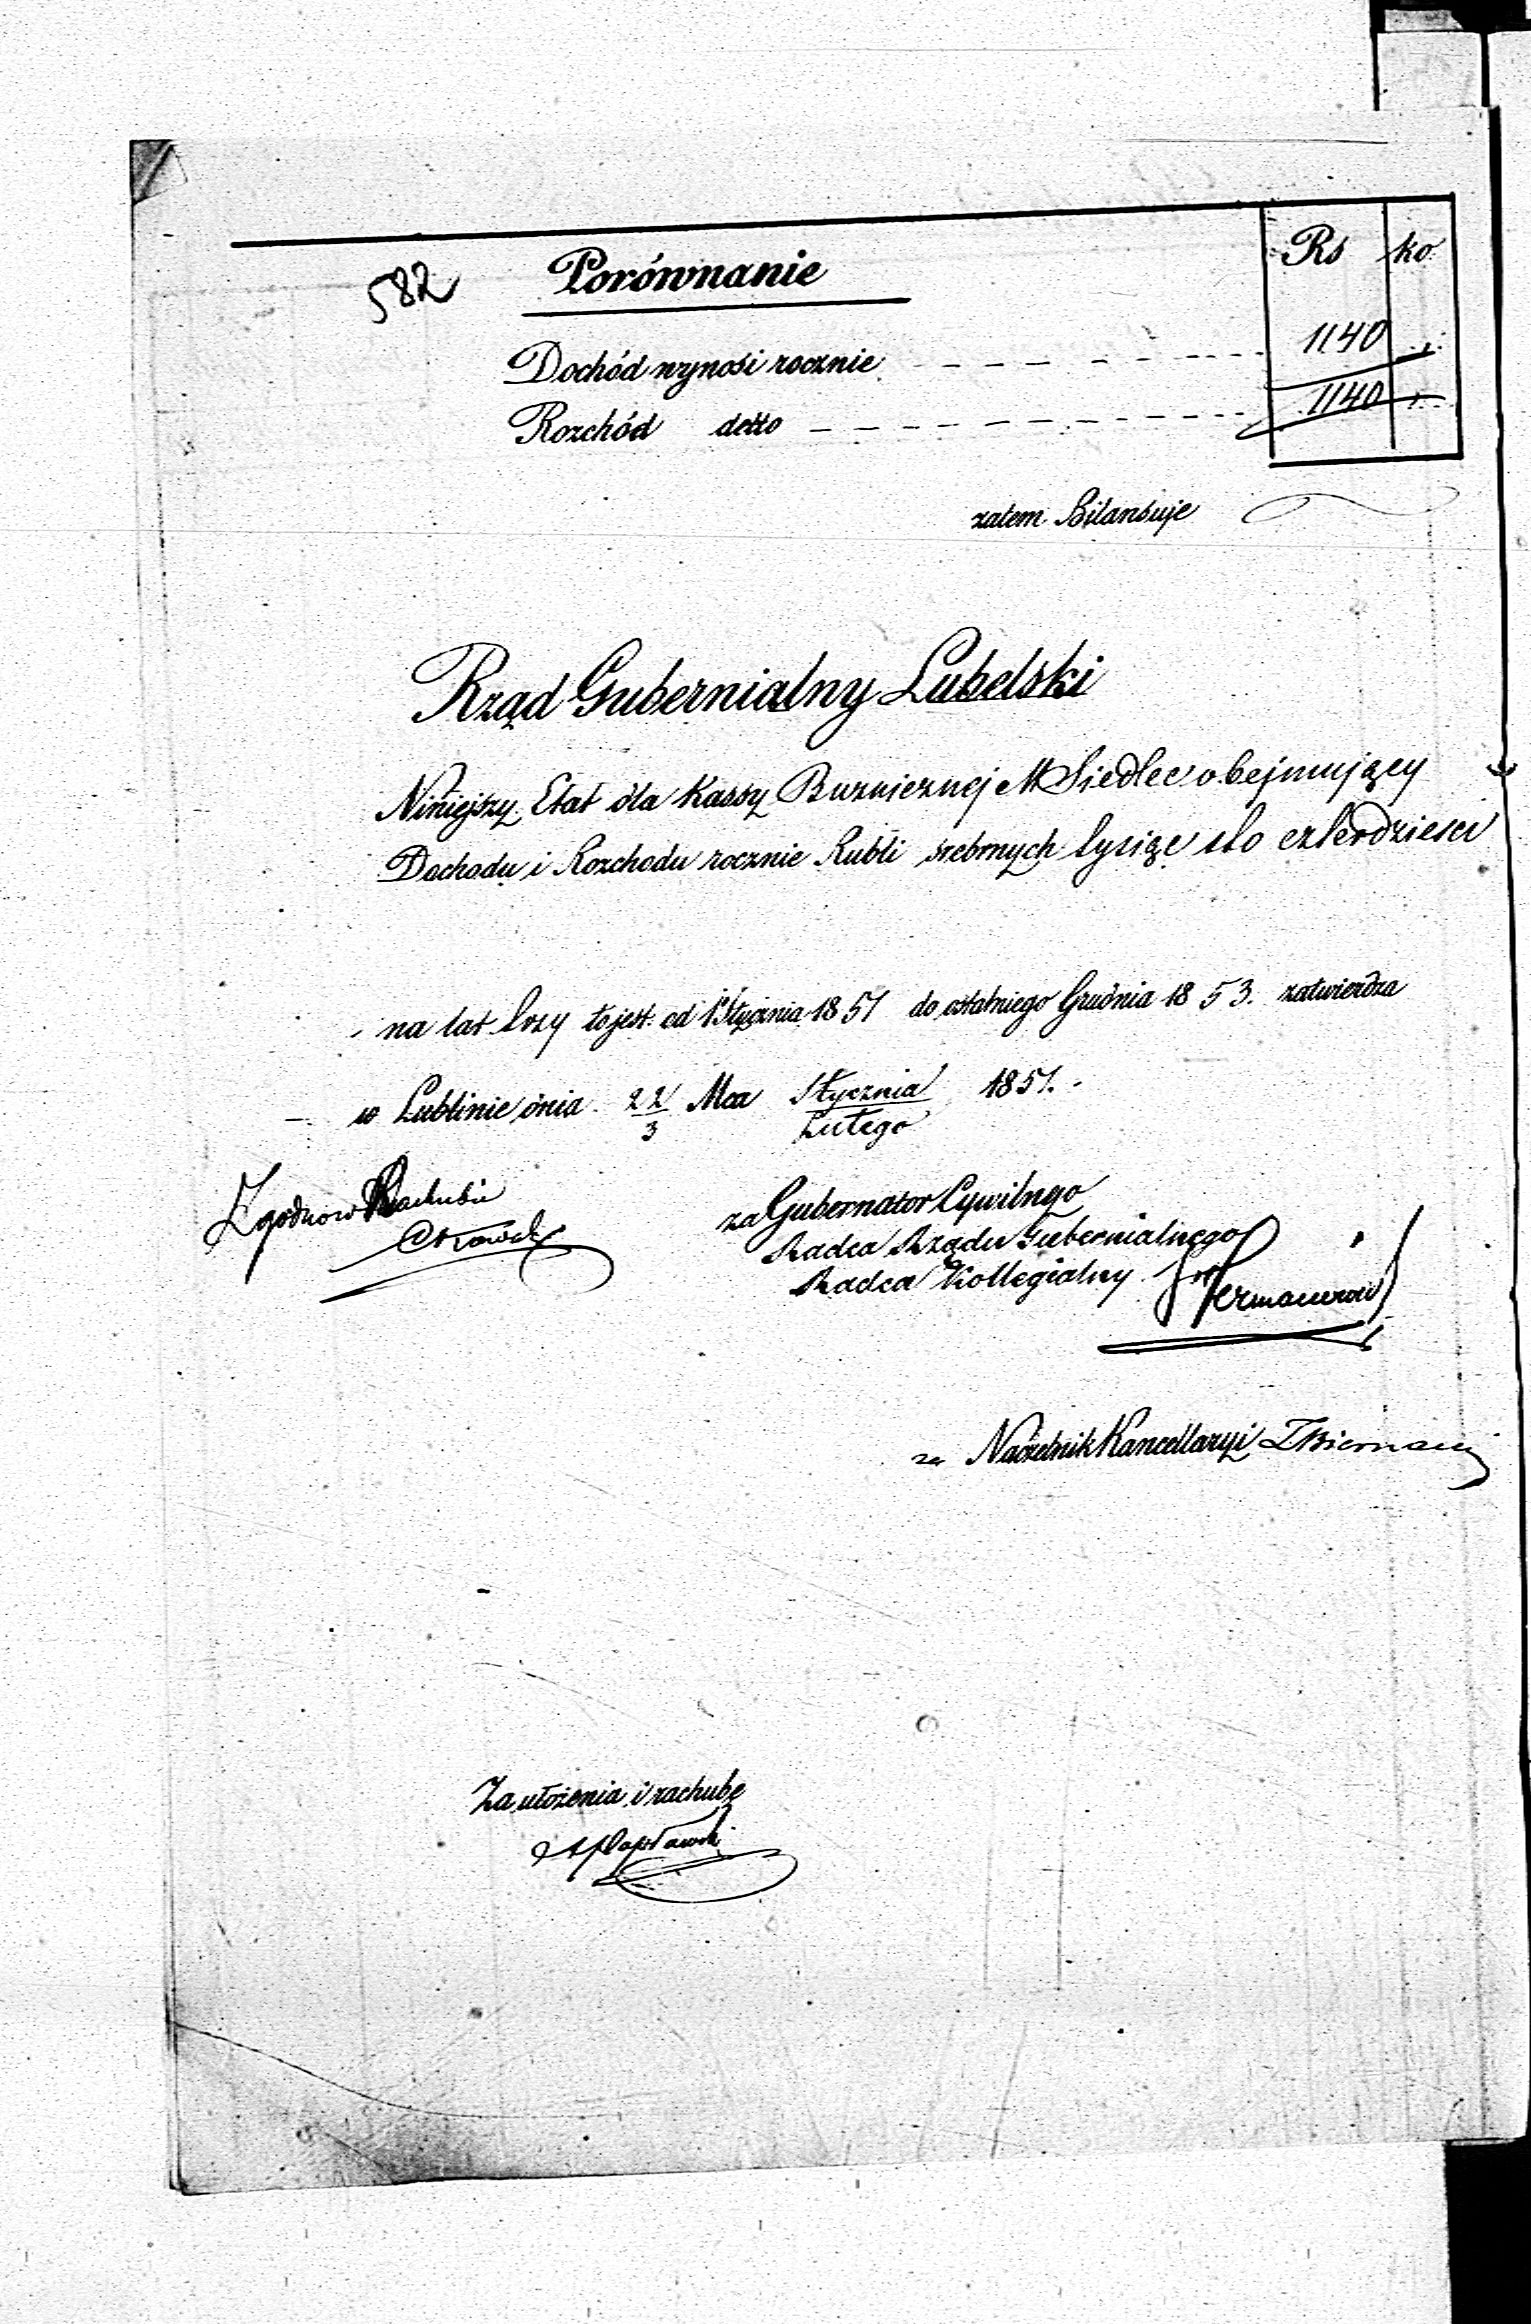 Rs ko
582 Porównanie
Dochód wynosi rocznie 1140
Rozchód detto 1140
zatem Bilansuje
Rząd Gubernialny Lubelski
Niniejszy Etat dla Kassy Buznicznej M Siedlec obejmujący
Dochodu i Rozchodu rocznie Rubli srebrnych tysiąc sto czterdzieści
na lat trzy to jest od 1 Stycznia 1851 do ostatniego Grudnia 1853. zatwierdza
w Lublinie dnia 22/3 Mca Stycznia/Lutego 1851.
Zgodno w Rachubie
za Gubernator Cywilnego
Radca Rządu Gubernialnego
Radca Kollegialny
za Naczelnik Kancellaryi
Za ułożenia i rachubę